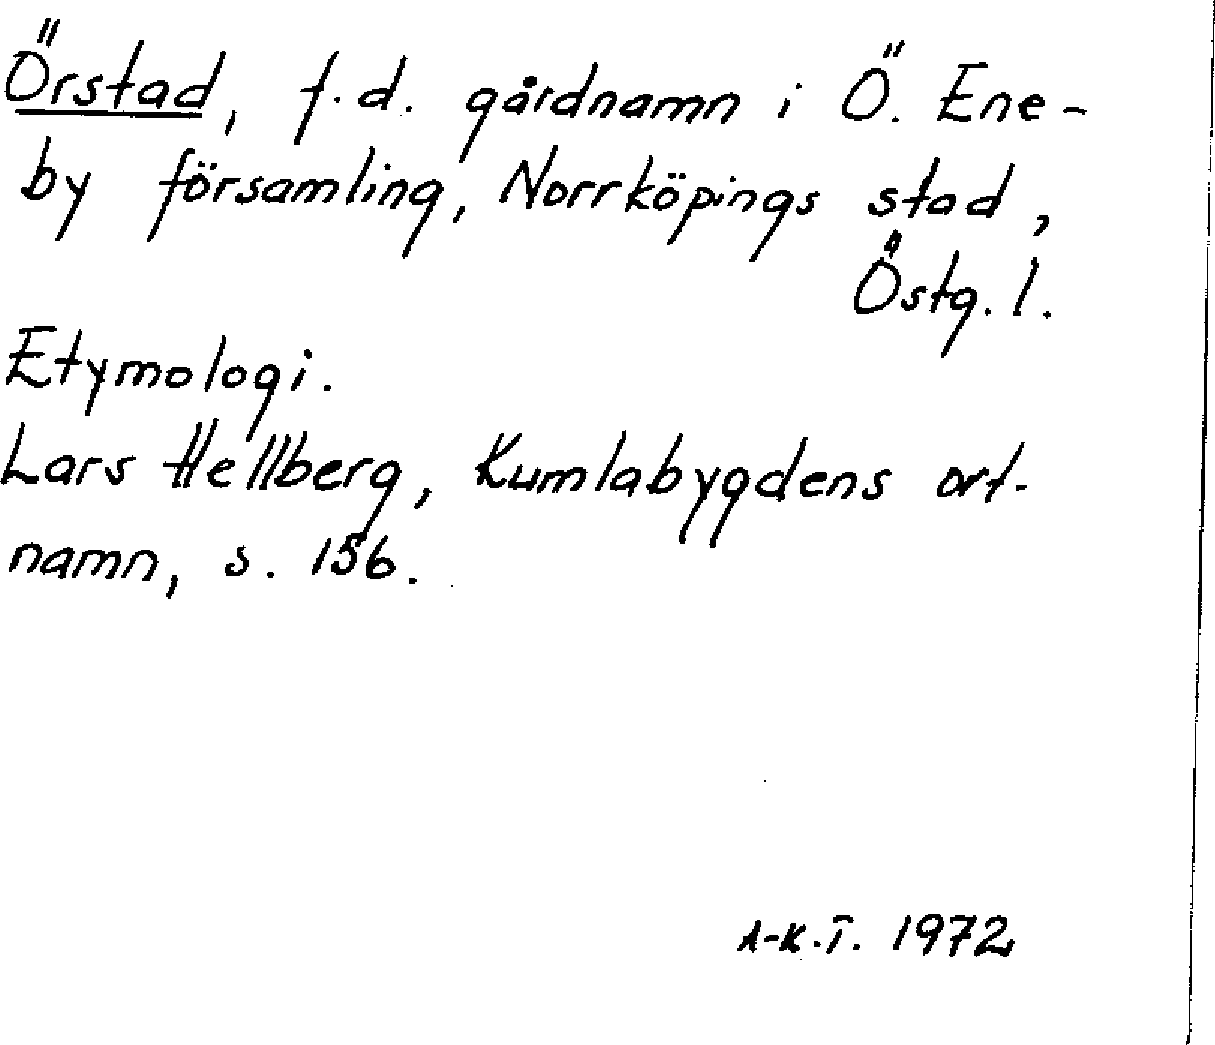 Örstad, f.d. gårdnamn i Ö. Ene-
by församling, Norrköpings stad,
Östg. l.
Etymologi.
Lars Hellberg, Kumlabygdens ort-
namn, s. 156.
A-K.T. 1972